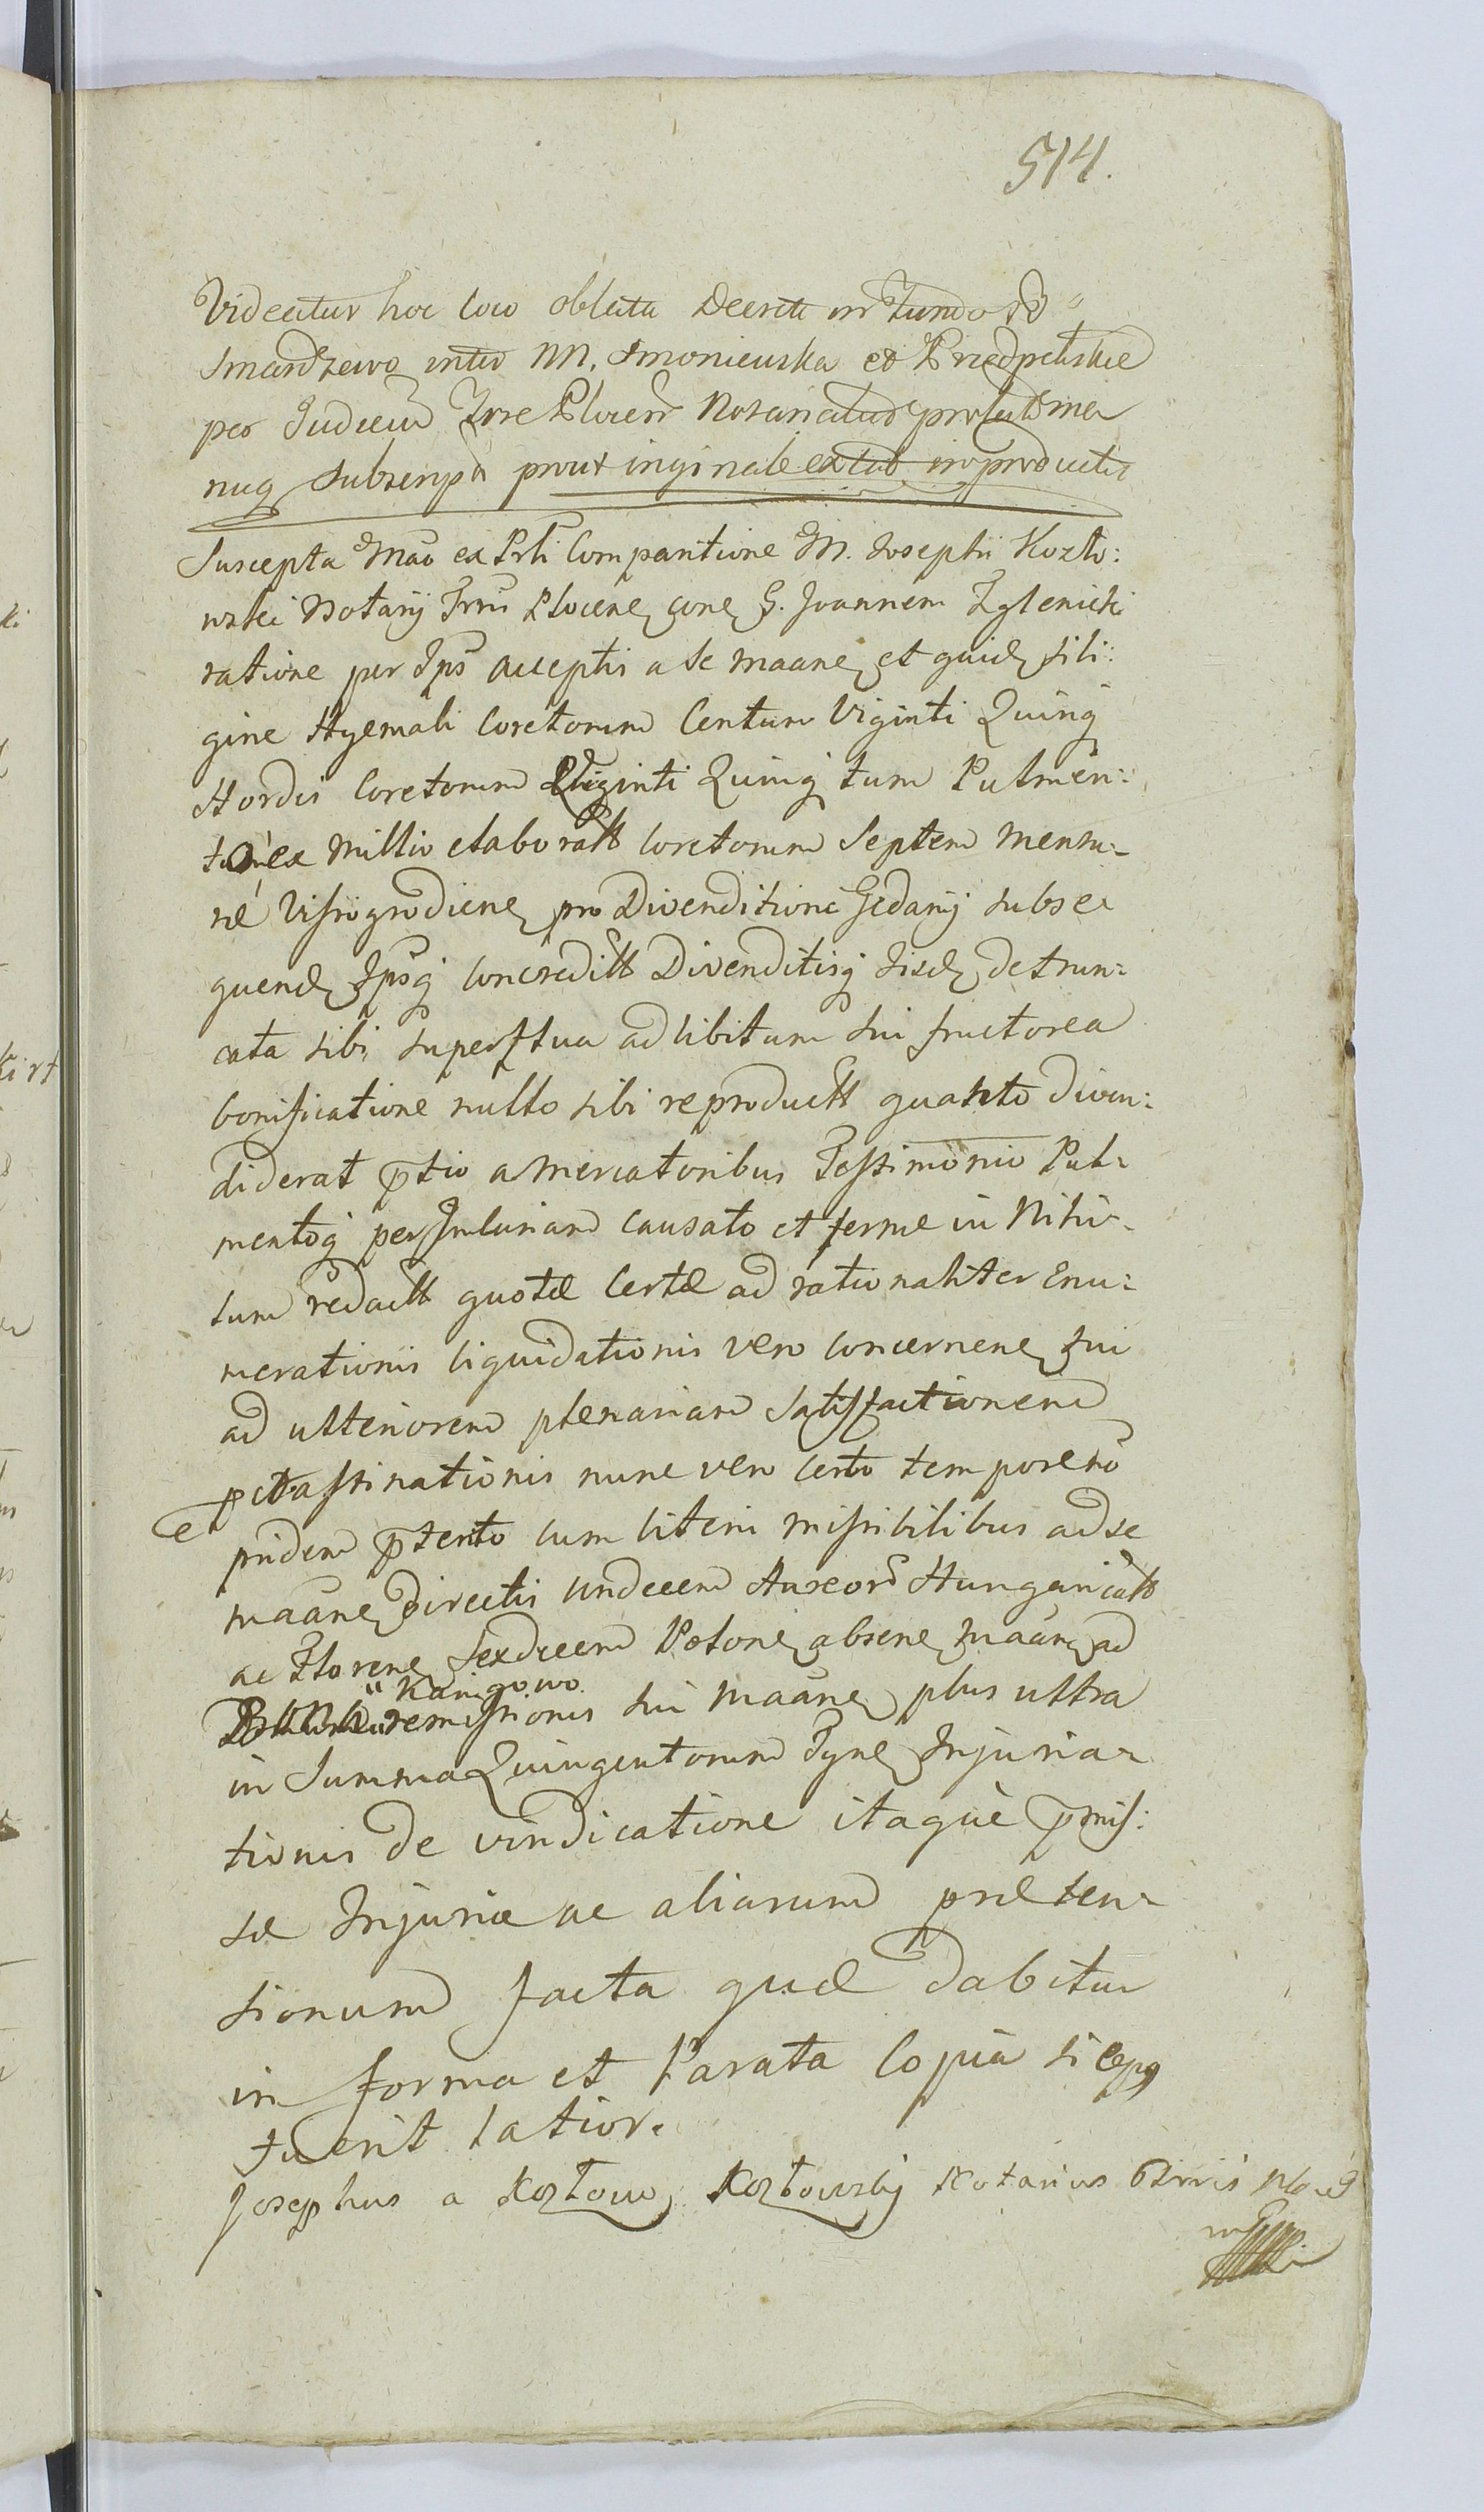 514.
Videatur hoc loco oblata Decreti in Fundo
Smardzewo inter MM. Smoniewska et Przedpelskie
per Judicem Trre Plocen Notariatus prolati ma
nuq subscripti prout inginale extat in productis
Suscepta Mao ex Prli Comparitione M. Josephi Kozlo:
wski Notarij Trris Plocene cone G. Joannem Zglenicki
ratione per Ips acceptis a se maane et quid sili:
gine Hyemali Coretorum Centum Viginti Quinq
Hordei Coretorum Viginti Quinq tum Pulmen:
to ex Millio elaboratt Coretorum Septem Mensu-
ræ Visrogrodiene pro Divenditione Gedanij subse
quend Ipsq concreditt Divenditisq iisd detrun:
cata sibi superflua ad libitum sui fructorea
bonificatione nullo sibi reproductt quanto diven:
diderat ptio a Mercatoribus Testimonio Pul-
mentoq per Incuriam causato et ferme in Nihi-
lum redactt quotæ Certæ ad rationaliter Enu:
merationis liquidationis vero concernene sui
ad ulteriorem plenariam satisfactionem
pcrastinationis nunc vero certo tempore nõ
pridem ptento cum literis missibilibus ad se
maane directis Undecem Aureor Hungaricatt
ac Florene Sexdecem Polone absene maane ad
Kanigowo
remissionis sui maane plus ultra
in Summa Quingentorum Tyne Injuria-
tionis de vindicatione itaque pmis:
sæ Injuriæ ac aliarum præten-
sionum facta quæ dabitur
in forma et Parata Copia si op9
fuerit latior.
Josephus a Kozłowo Kozłowskij Notarius Trris Ploc